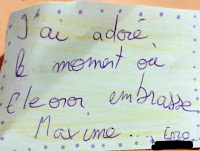 J'ai adoré
le moment où
Eleonor embrasse
Maxime... Enzo